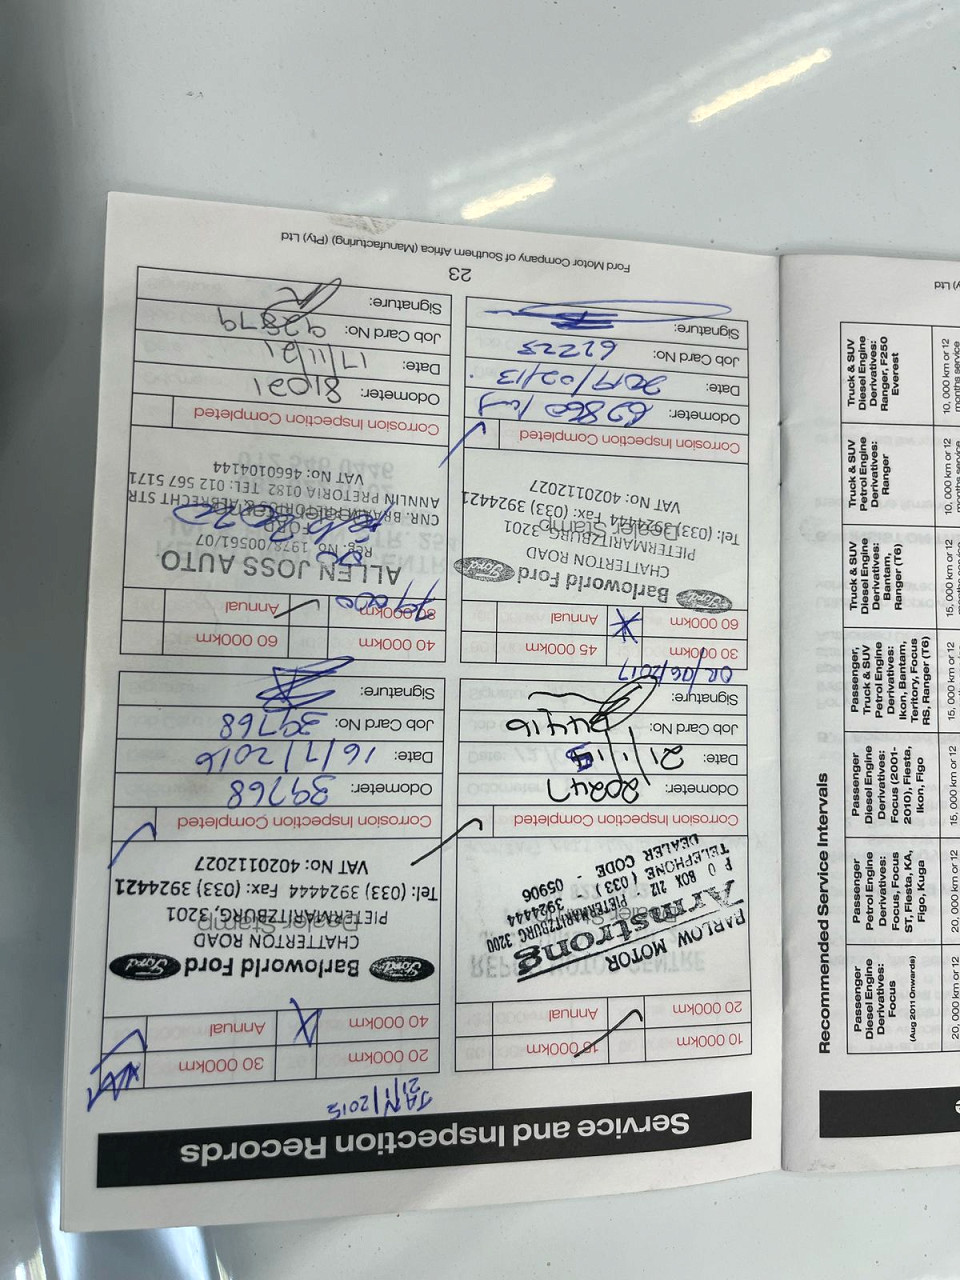 Service and Inspection Records
JAN/2015
21
10 000km
15 000km
20 000km
Annual
BARLOW MOTOR
Armstrong
PIETERMARITZBURG 3200
P O BOX 212
TELEPHONE (033) 3924444
DEALER CODE - 05906
Dealer Stamp
Corrosion Inspection Completed
Odometer: 20247
Date: 21/1/15
Job Card No:
Signature:
20 000km
30 000km
40 000km
Annual
Ford
Barloworld Ford
Ford
CHATTERTON ROAD
PIETERMARITZBURG, 3201
Dealer Stamp
Tel: (033) 3924444 Fax: (033) 3924421
VAT No: 4020112027
Corrosion Inspection Completed
Odometer: 39768
Date: 16/7/2016
Job Card No: 39768
Signature:
02/06/2017
30 000km
45 000km
60 000km
Annual
Ford
Barloworld Ford
Ford
CHATTERTON ROAD
PIETERMARITZBURG, 3201
Dealer Stamp
Tel: (033) 3924444 Fax: (033) 3924421
VAT No: 4020112027
Corrosion Inspection Completed
Odometer: 62860 km
Date: 2017/02/13
Job Card No: 62225
Signature:
40 000km
60 000km
80 000km
Annual
ALLEN JOSS AUTO
Reg. No. 1978/00561/07
FORD
Dealer Stamp
ANNLIN PRETORIA 0182 TEL: 012 567 5171
VAT No: 4660104144
Corrosion Inspection Completed
Odometer: 81021
Date: 17/11/21
Job Card No: 92879
Signature:
23
Ford Motor Company of Southern Africa (Manufacturing) (Pty) Ltd
Recommended Service Intervals
Passenger
Diesel Engine
Derivatives:
Focus
(Aug 2011 Onwards)
20, 000 km or 12
Passenger
Petrol Engine
Derivatives:
Focus, Focus
ST, Fiesta, KA,
Figo, Kuga
20, 000 km or 12
Passenger
Diesel Engine
Derivatives:
Focus (2001-
2010), Fiesta,
Ikon, Figo
15, 000 km or 12
Passenger,
Truck & SUV
Petrol Engine
Derivatives:
Ikon, Bantam,
Teritory, Focus
RS, Ranger (T6)
15, 000 km or 12
Truck & SUV
Diesel Engine
Derivatives:
Bantam,
Ranger (T6)
15, 000 km or 12
months service
Truck & SUV
Petrol Engine
Derivatives:
Ranger
10, 000 km or 12
months service
Truck & SUV
Diesel Engine
Derivatives:
Ranger, F250
Everest
10, 000 km or 12
months service
y) Ltd